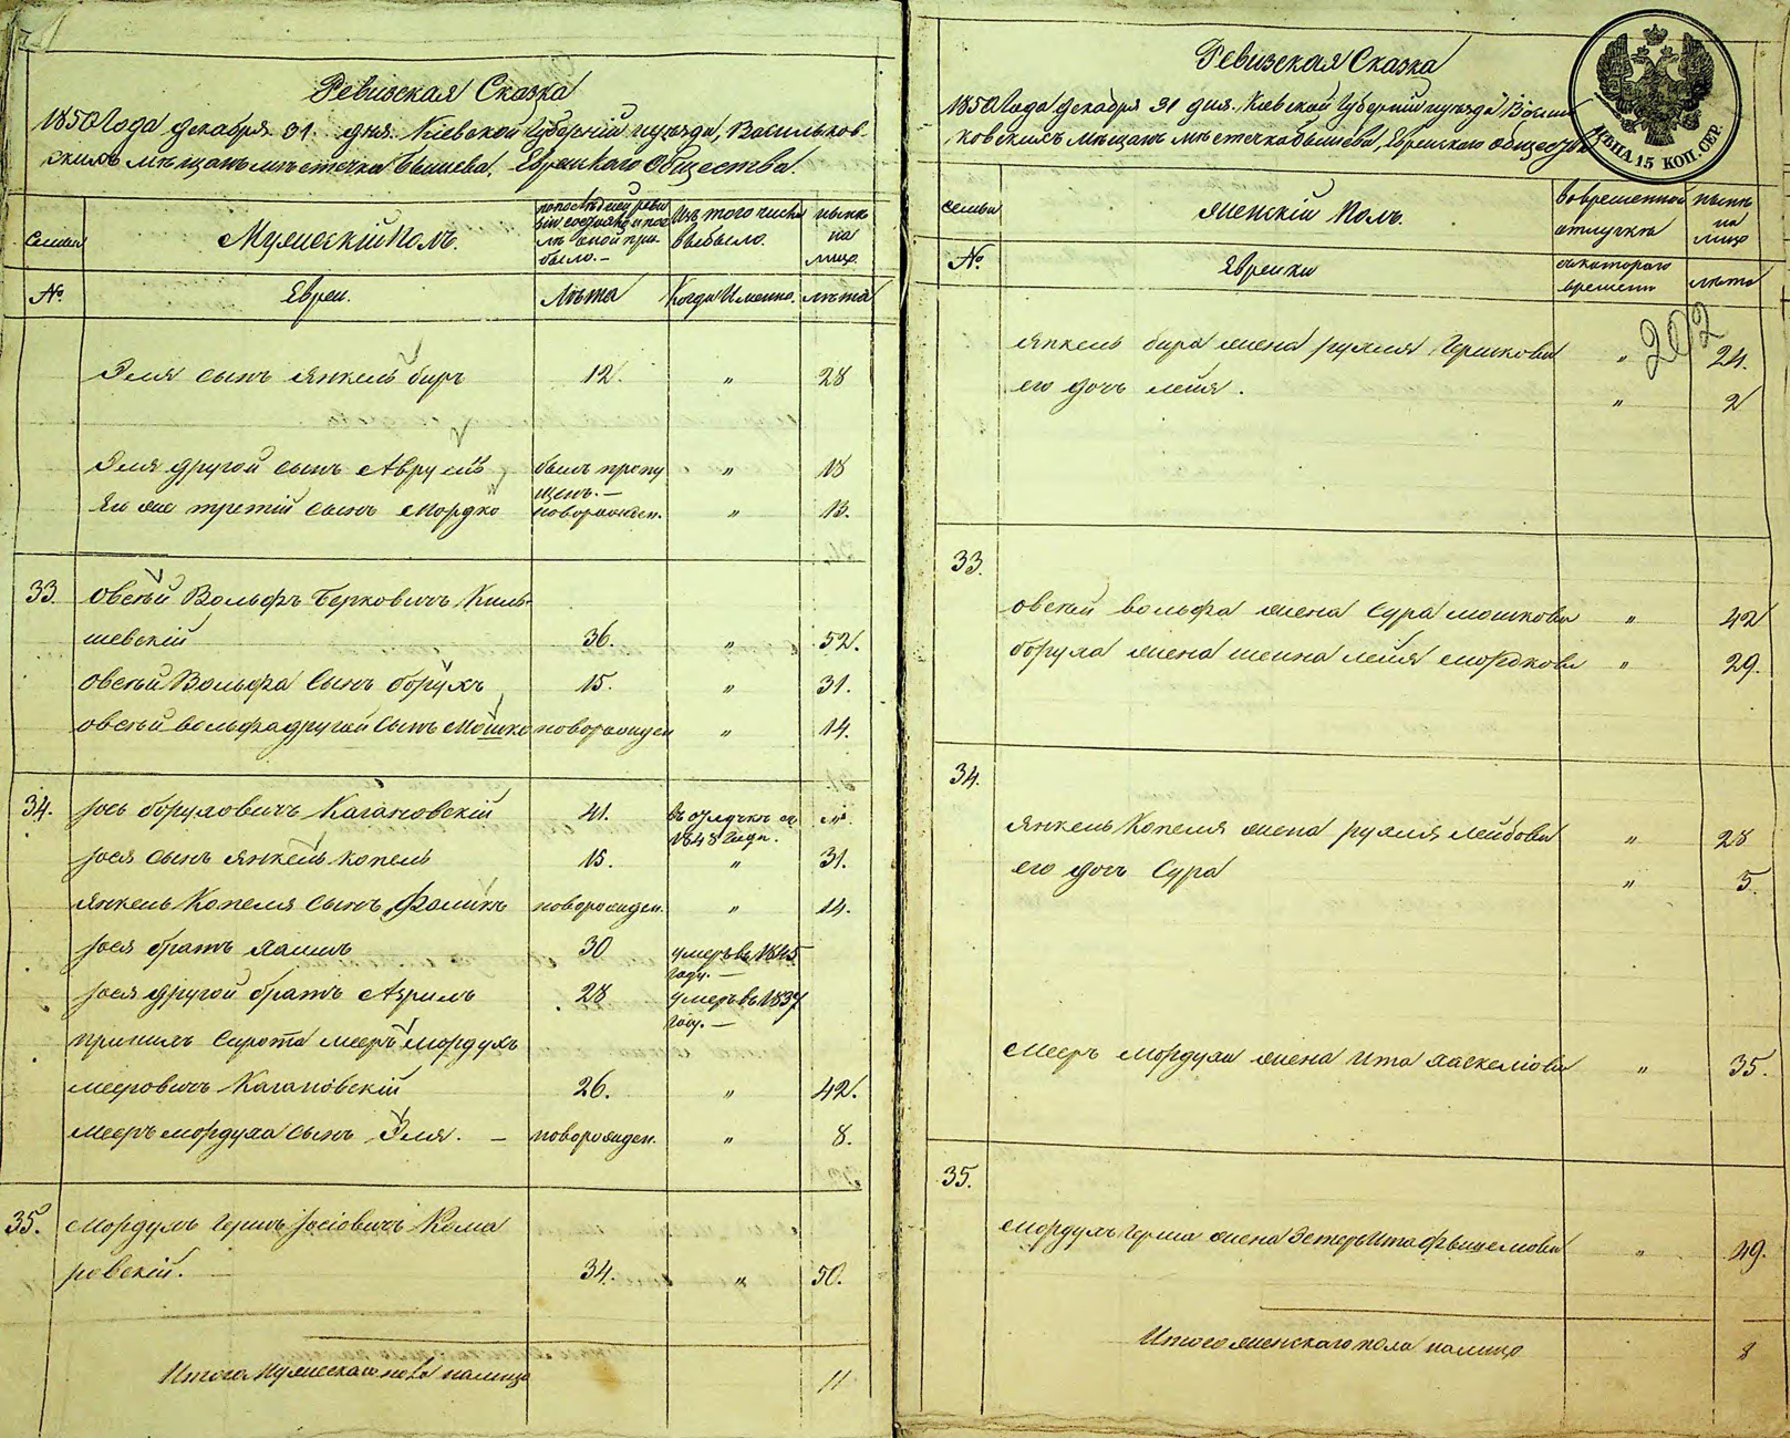 Ревизская Сказка
1850 Года Декабря 31. дня. Кіевской Губерніи и уезда, Васильков-
скихъ мѣщанъ мѣстечка Бышева, Еврейскаго Общества.
Семьи
Мужескій Полъ.
по последней реви
зіи состояло и пос
лѣ оной при-
было.-
Изъ того числа
выбыло.
нынѣ
на
лицо
№
Евреи.
Лѣта
Когда Именно.
лѣта
Эля сынъ Янкель биръ 12. " 28
Эля другой сынъ Аврумъ былъ пропу " 18
щенъ.-
Его же третій сынъ Мордко новорожден. " 13.
33. Овсѣй Вольфъ Берковичъ Киль-
шевскій 36. " 52.
Овсѣй Вольфа Сынъ борухъ 15. " 31.
овсѣй вольфа другой Сынъ Мошко новорожден " 14.
34. Іось боруховичъ Кагановскій 41. въ отлучкѣ съ "
1848 года.
Іося сынъ Янкель копель 15. " 31.
Янкель Копеля Сынъ Фаликъ новорожден. " 14.
Іося братъ хаимъ 30 умеръ въ 1845
году.-
Іося другой братъ Азриль 28 умеръ въ 1837
году.-
принятъ Сирота мееръ мордухъ
мееровичъ Кагановскій 26. " 42.
мееръ мордуха сынъ Эля. - новорожден. " 8.
35. Мордухъ Гершъ Іосіовичъ Кома
ровскій. 34. " 50.
Итого Мужескаго пола налицо 11
Ревизская Сказка
1850 Года Декабря 31 дня. Кіевской Губерніи и уезда Василь
ковскихъ Мѣщанъ мѣстечка бышева, Еврейскаго общества
ЦѢНА 15 КОП. СЕР.
семьи
Женскій Полъ.
во временной
отлучкѣ
нынѣ
на
лицо
№.
Еврейки
съ котораго
времени
лѣта
202
Янкель бира жена рухля Гершкова " 24.
его дочь лейя. " 2
33.
овсѣй вольфа жена Сура мошкова " 42
боруха жена шейна лейя мордкова " 29.
34.
Янкель Копеля жена рухля лейбова " 28
его дочь Сура " 5.
Мееръ мордуха жена Ита хаскеліова " 35.
35.
Мордухъ Герша жена Эстеръ Ита " 49.
Итого женскаго пола налицо 8